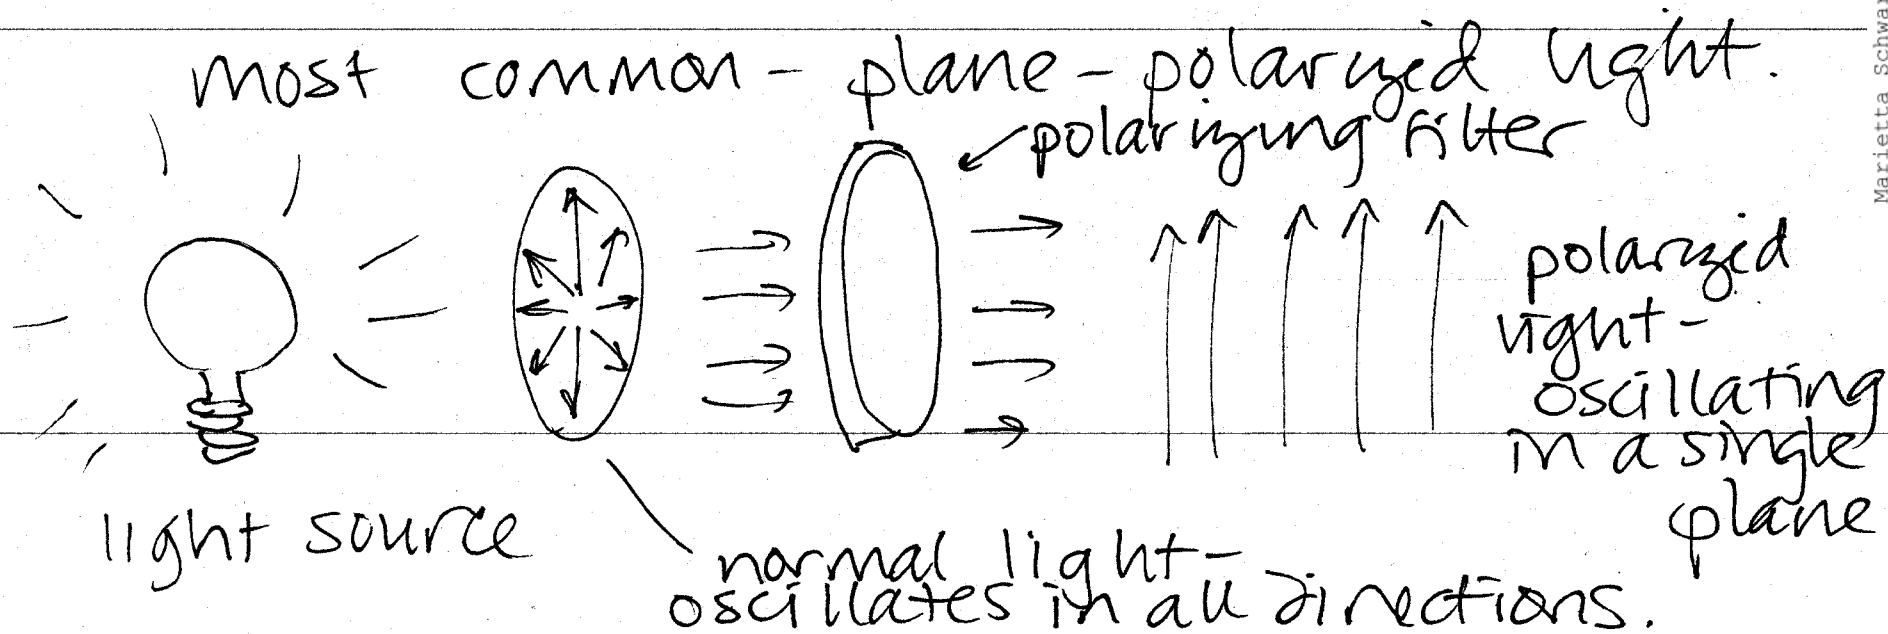 most common - plane-polarized light.
polarizing filter
polarized
light-
oscillating
in a single
plane
light source
normal light-
oscillates in all directions.
Marietta Schwar